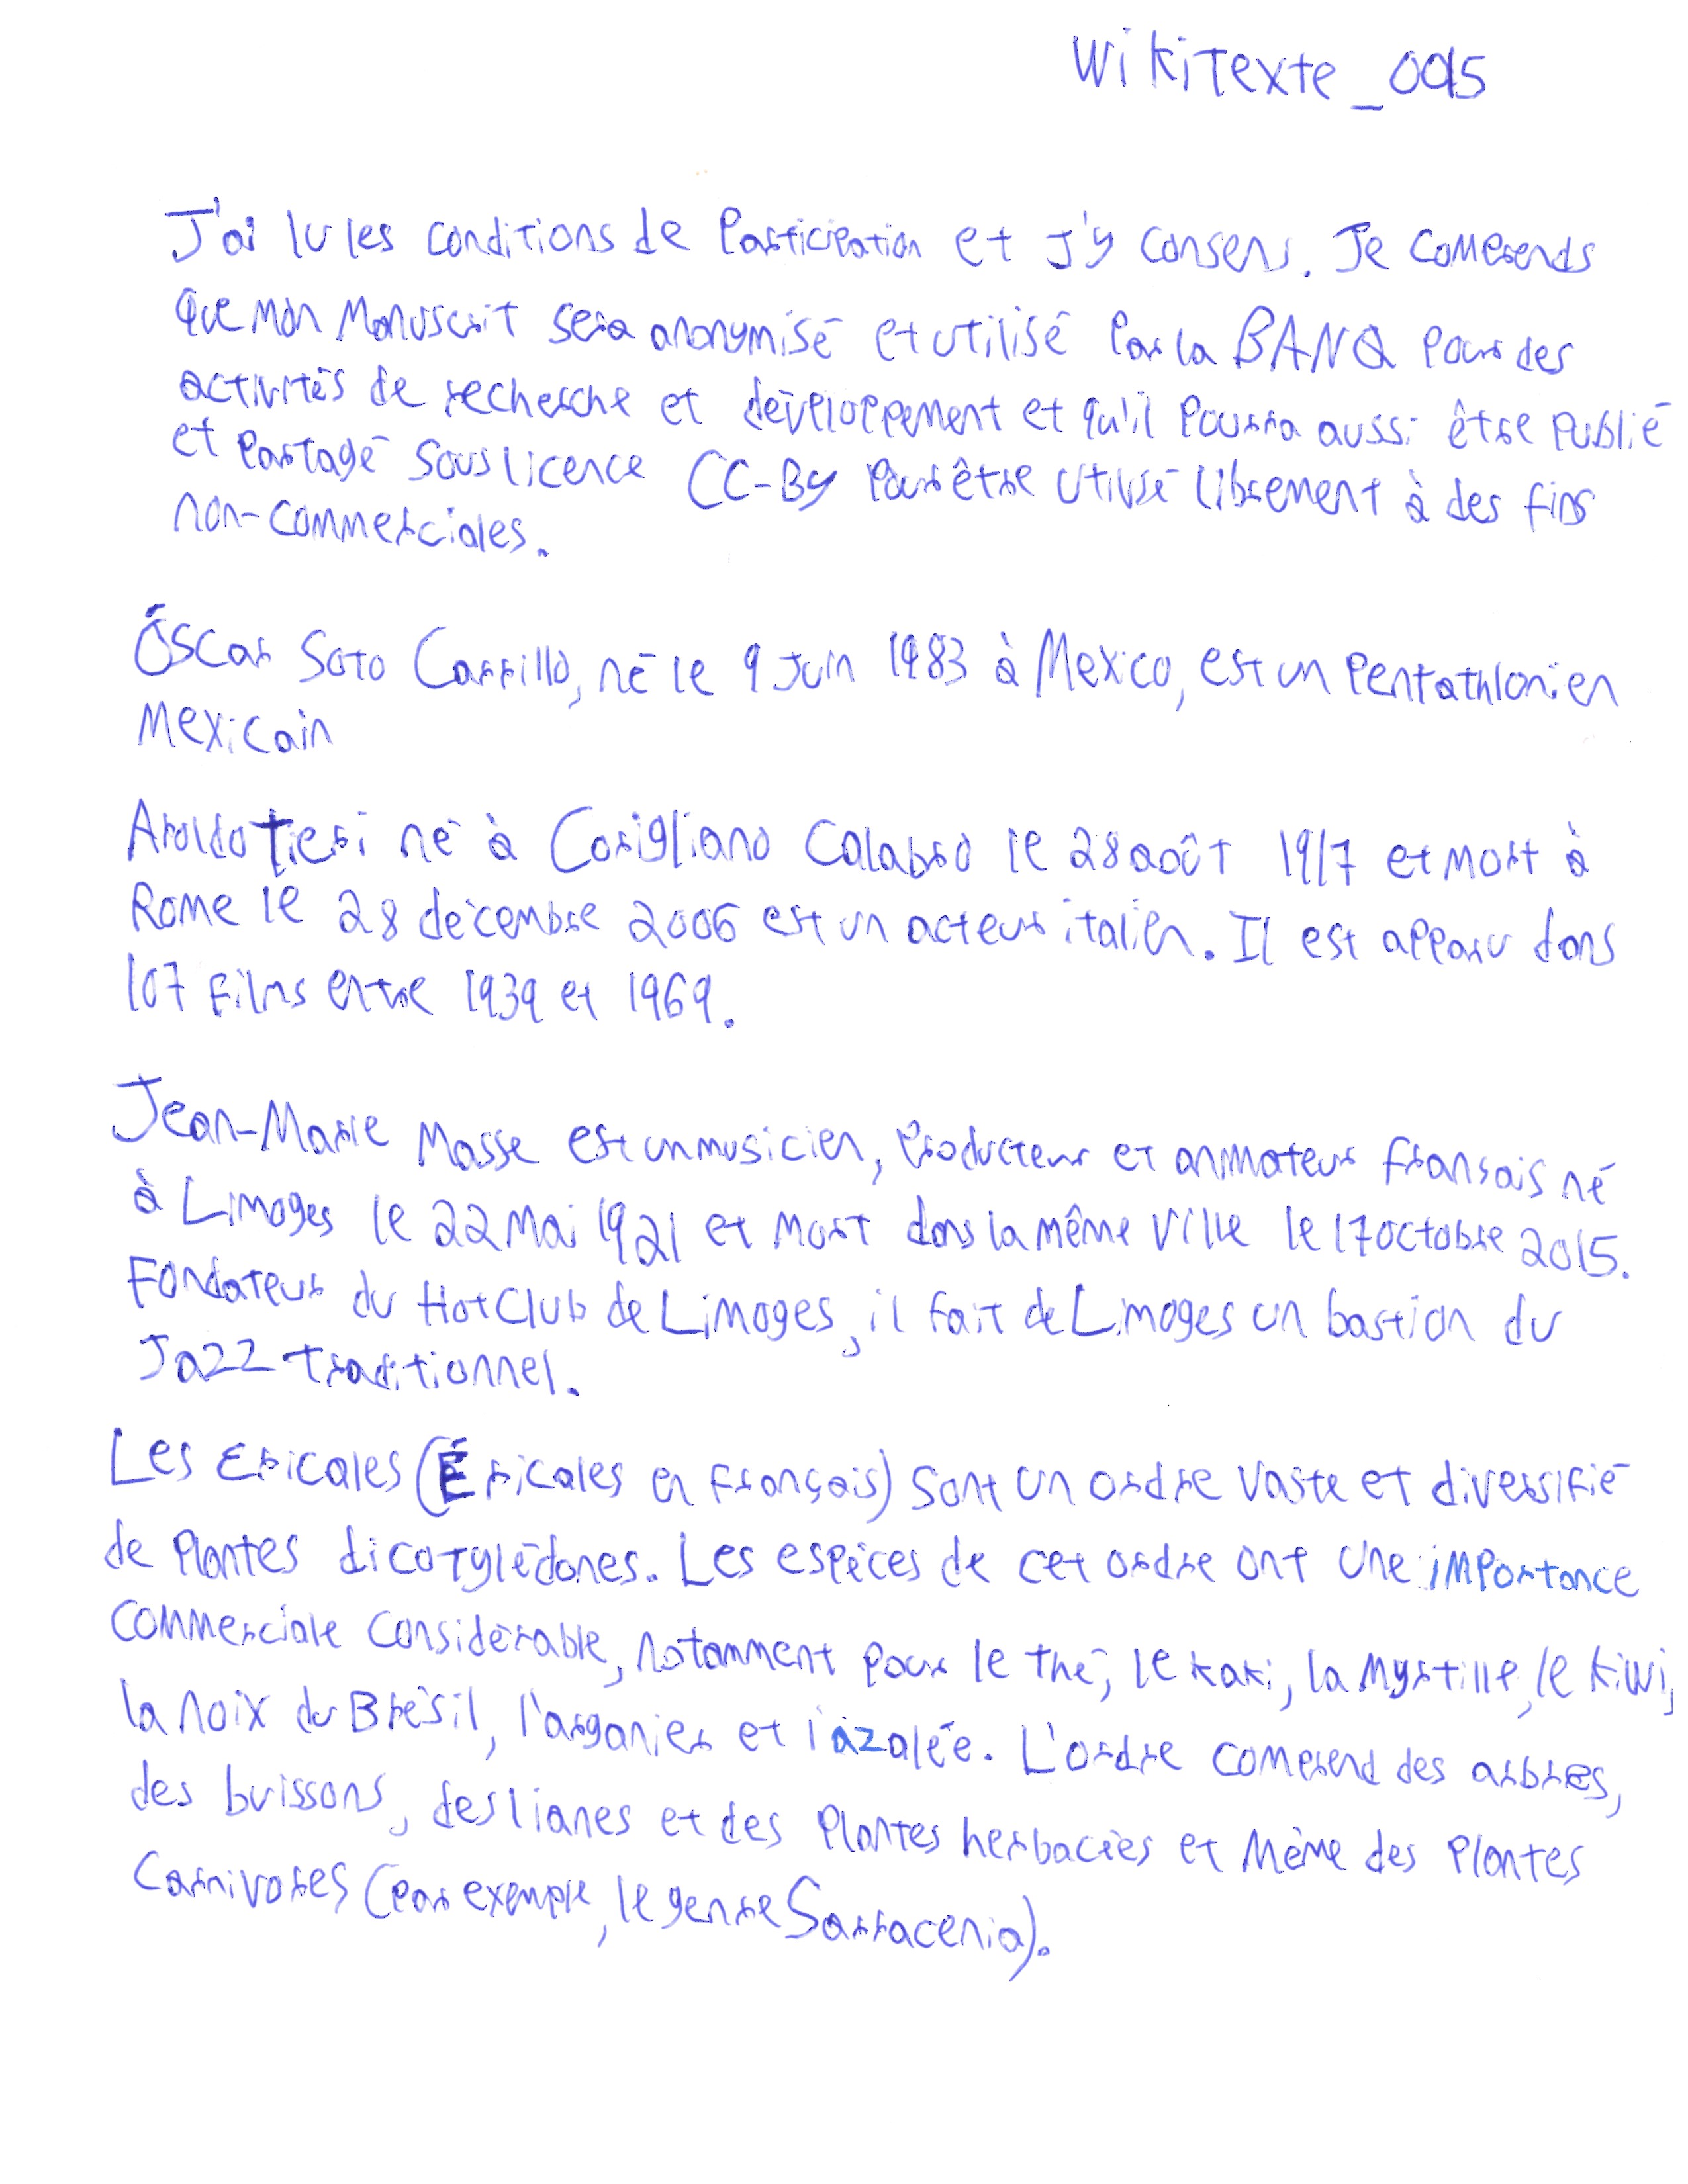 Wikitexte_0015
J'ai lu les conditions de participation et j'y consens. Je comprends
que mon manuscrit sera anonymisé et utilisé par la BANQ pour des
activités de recherche et développement et qu'il pourra aussi être publié
et partagé sous licence CC-By pour être utilisé librement à des fins
non-commerciales.
Óscar Soto Carrillo, né le 9 juin 1983 à Mexico, est un pentathlonien
mexicain
Aroldo Tieri né à Corigliano Calabro le 28 août 1917 et mort à
Rome le 28 décembre 2006 est un acteur italien. Il est apparu dans
107 films entre 1939 et 1969.
Jean-Marie Masse est un musicien, producteur et animateur fransais né
à Limoges le 22 mai 1921 et mort dans la même ville le 17 octobre 2015.
Fondateur du Hot Club de Limoges, il fait de Limoges un bastion du
Jazz traditionnel.
Les Ericales (Éricales en français) sont un ordre vaste et diversifié
de plantes dicotylédones. Les espèces de cet ordre ont une importance
commerciale considérable, notamment pour le thé, le kaki, la myrtille, le kiwi,
la noix du Brésil, l'arganier et l'azalée. L'ordre comprend des arbres,
des buissons, des lianes et des plantes herbacées et même des plantes
carnivores (par exemple, le genre Sarracenia).